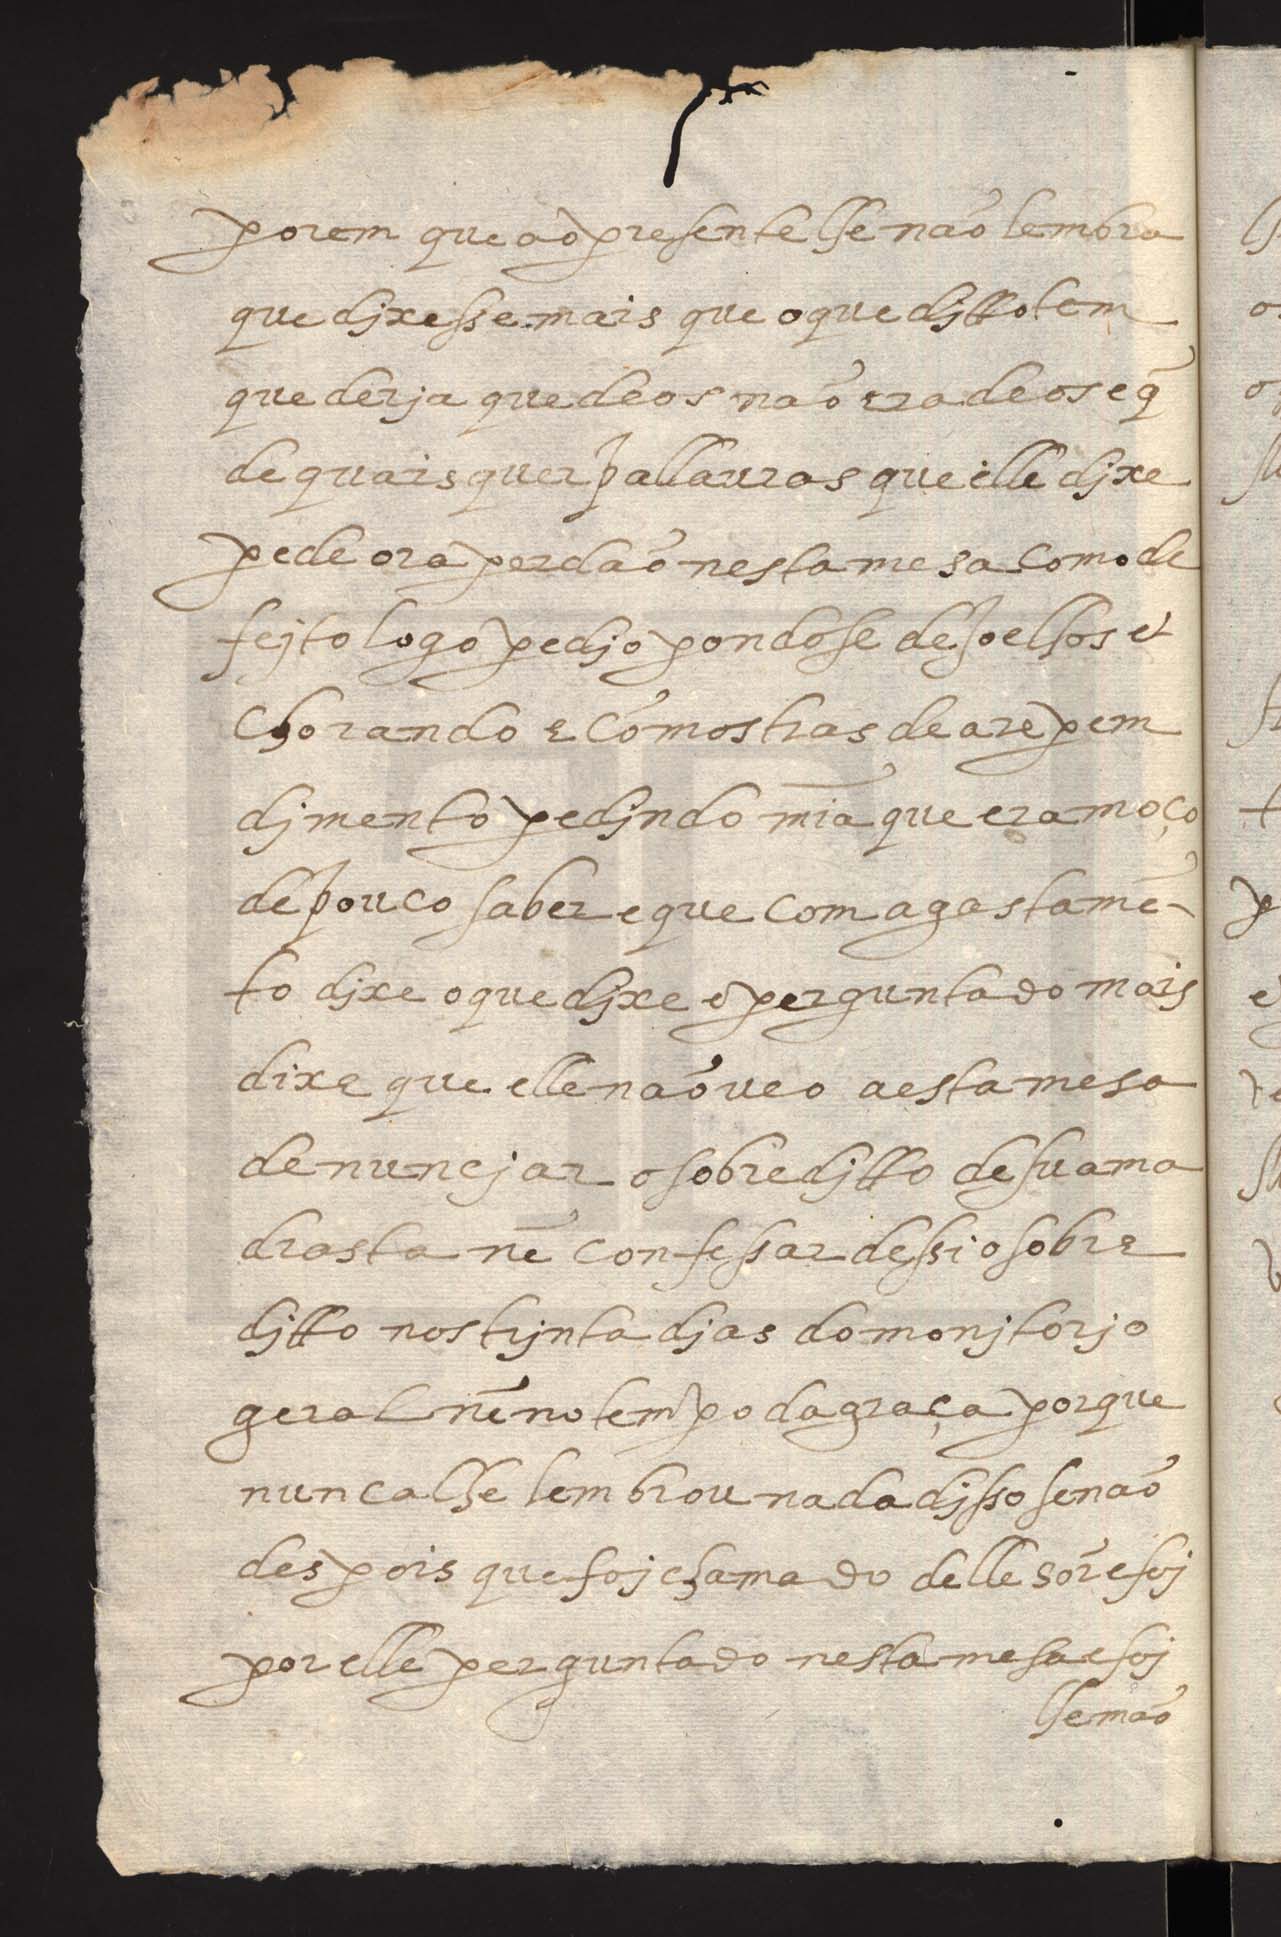 porem que ao presente lhe não lembra
que djxesse mais que o que djtto tem
que derja que deos não era deos e q̃
de quaisquer pallauras que elle djxe
pede ora perdão nesta mesa como de
fejto logo pedjo pondose de Joelhos et
chorando e cõ mostras de arepem
djmento pedjndo mĩa que era moço
de pouco saber e que com agastamẽ-
to djxe o que djxe e perguntado mais
dixe que elle não ueo a esta mesa
denuncjar o sobredjtto de sua ma
drasta nẽ confessar de ssi o sobre
djtto nos trjnta djas do monjtorjo
geral nẽ no tempo da graça porque
nunca lhe lembrou nada djsso senão
despois que foj chamado delle sõr e foj
por elle perguntado nesta mesa e foj
lhe mão